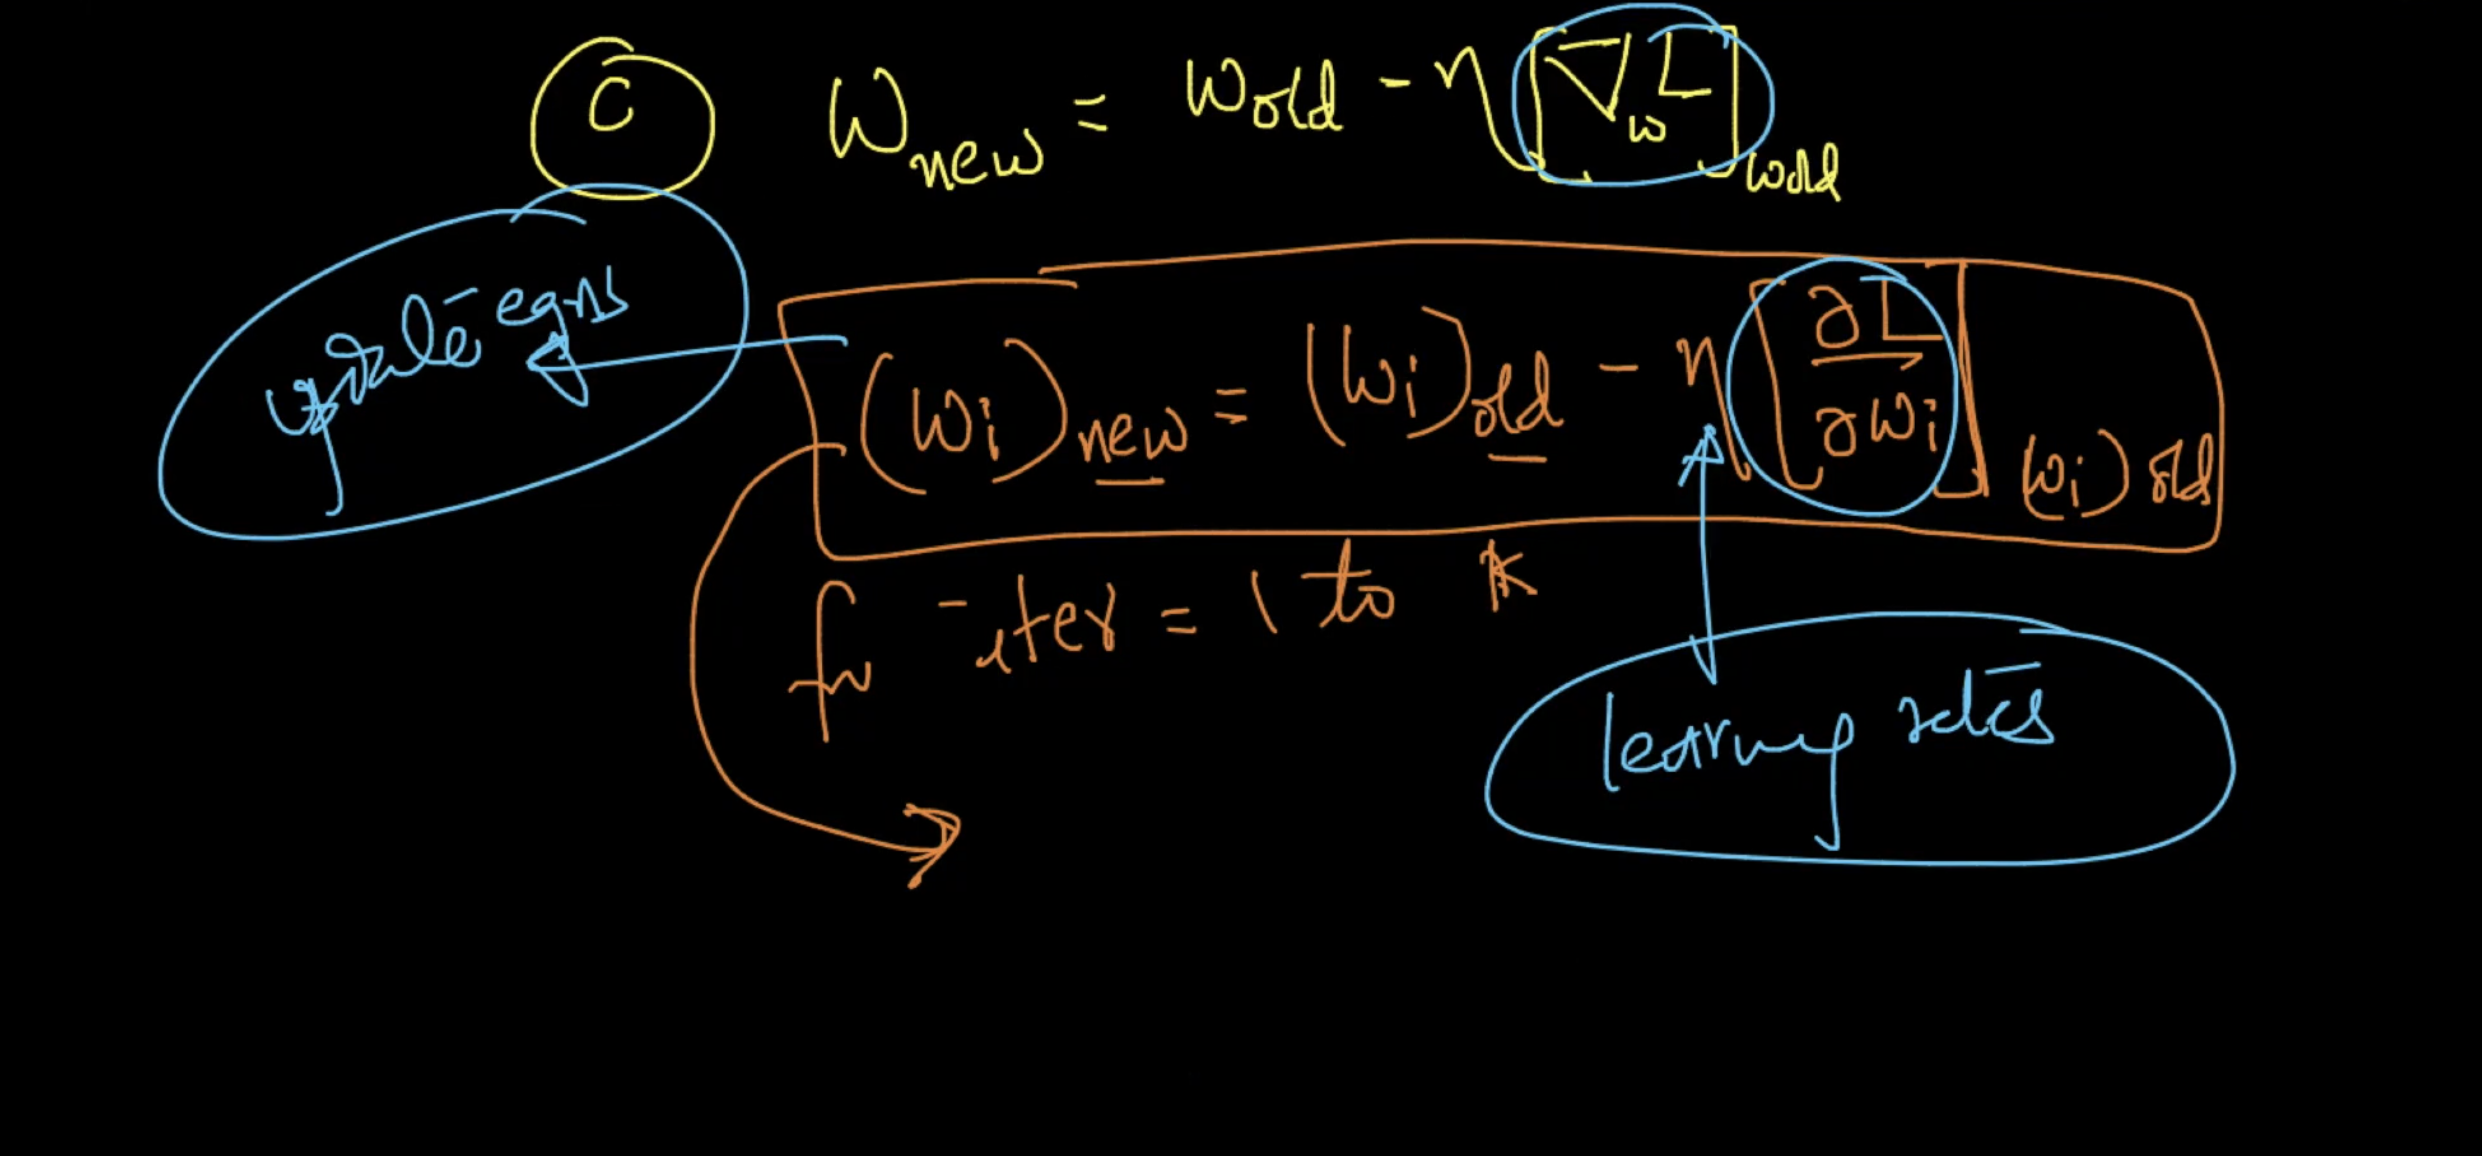 C W_new = W_old - η[∇_w L]_w_old
update eqns
(w_i)_new = (w_i)_old - η[∂L/∂w_i]_(w_i)old
for iter = 1 to K
learning rates